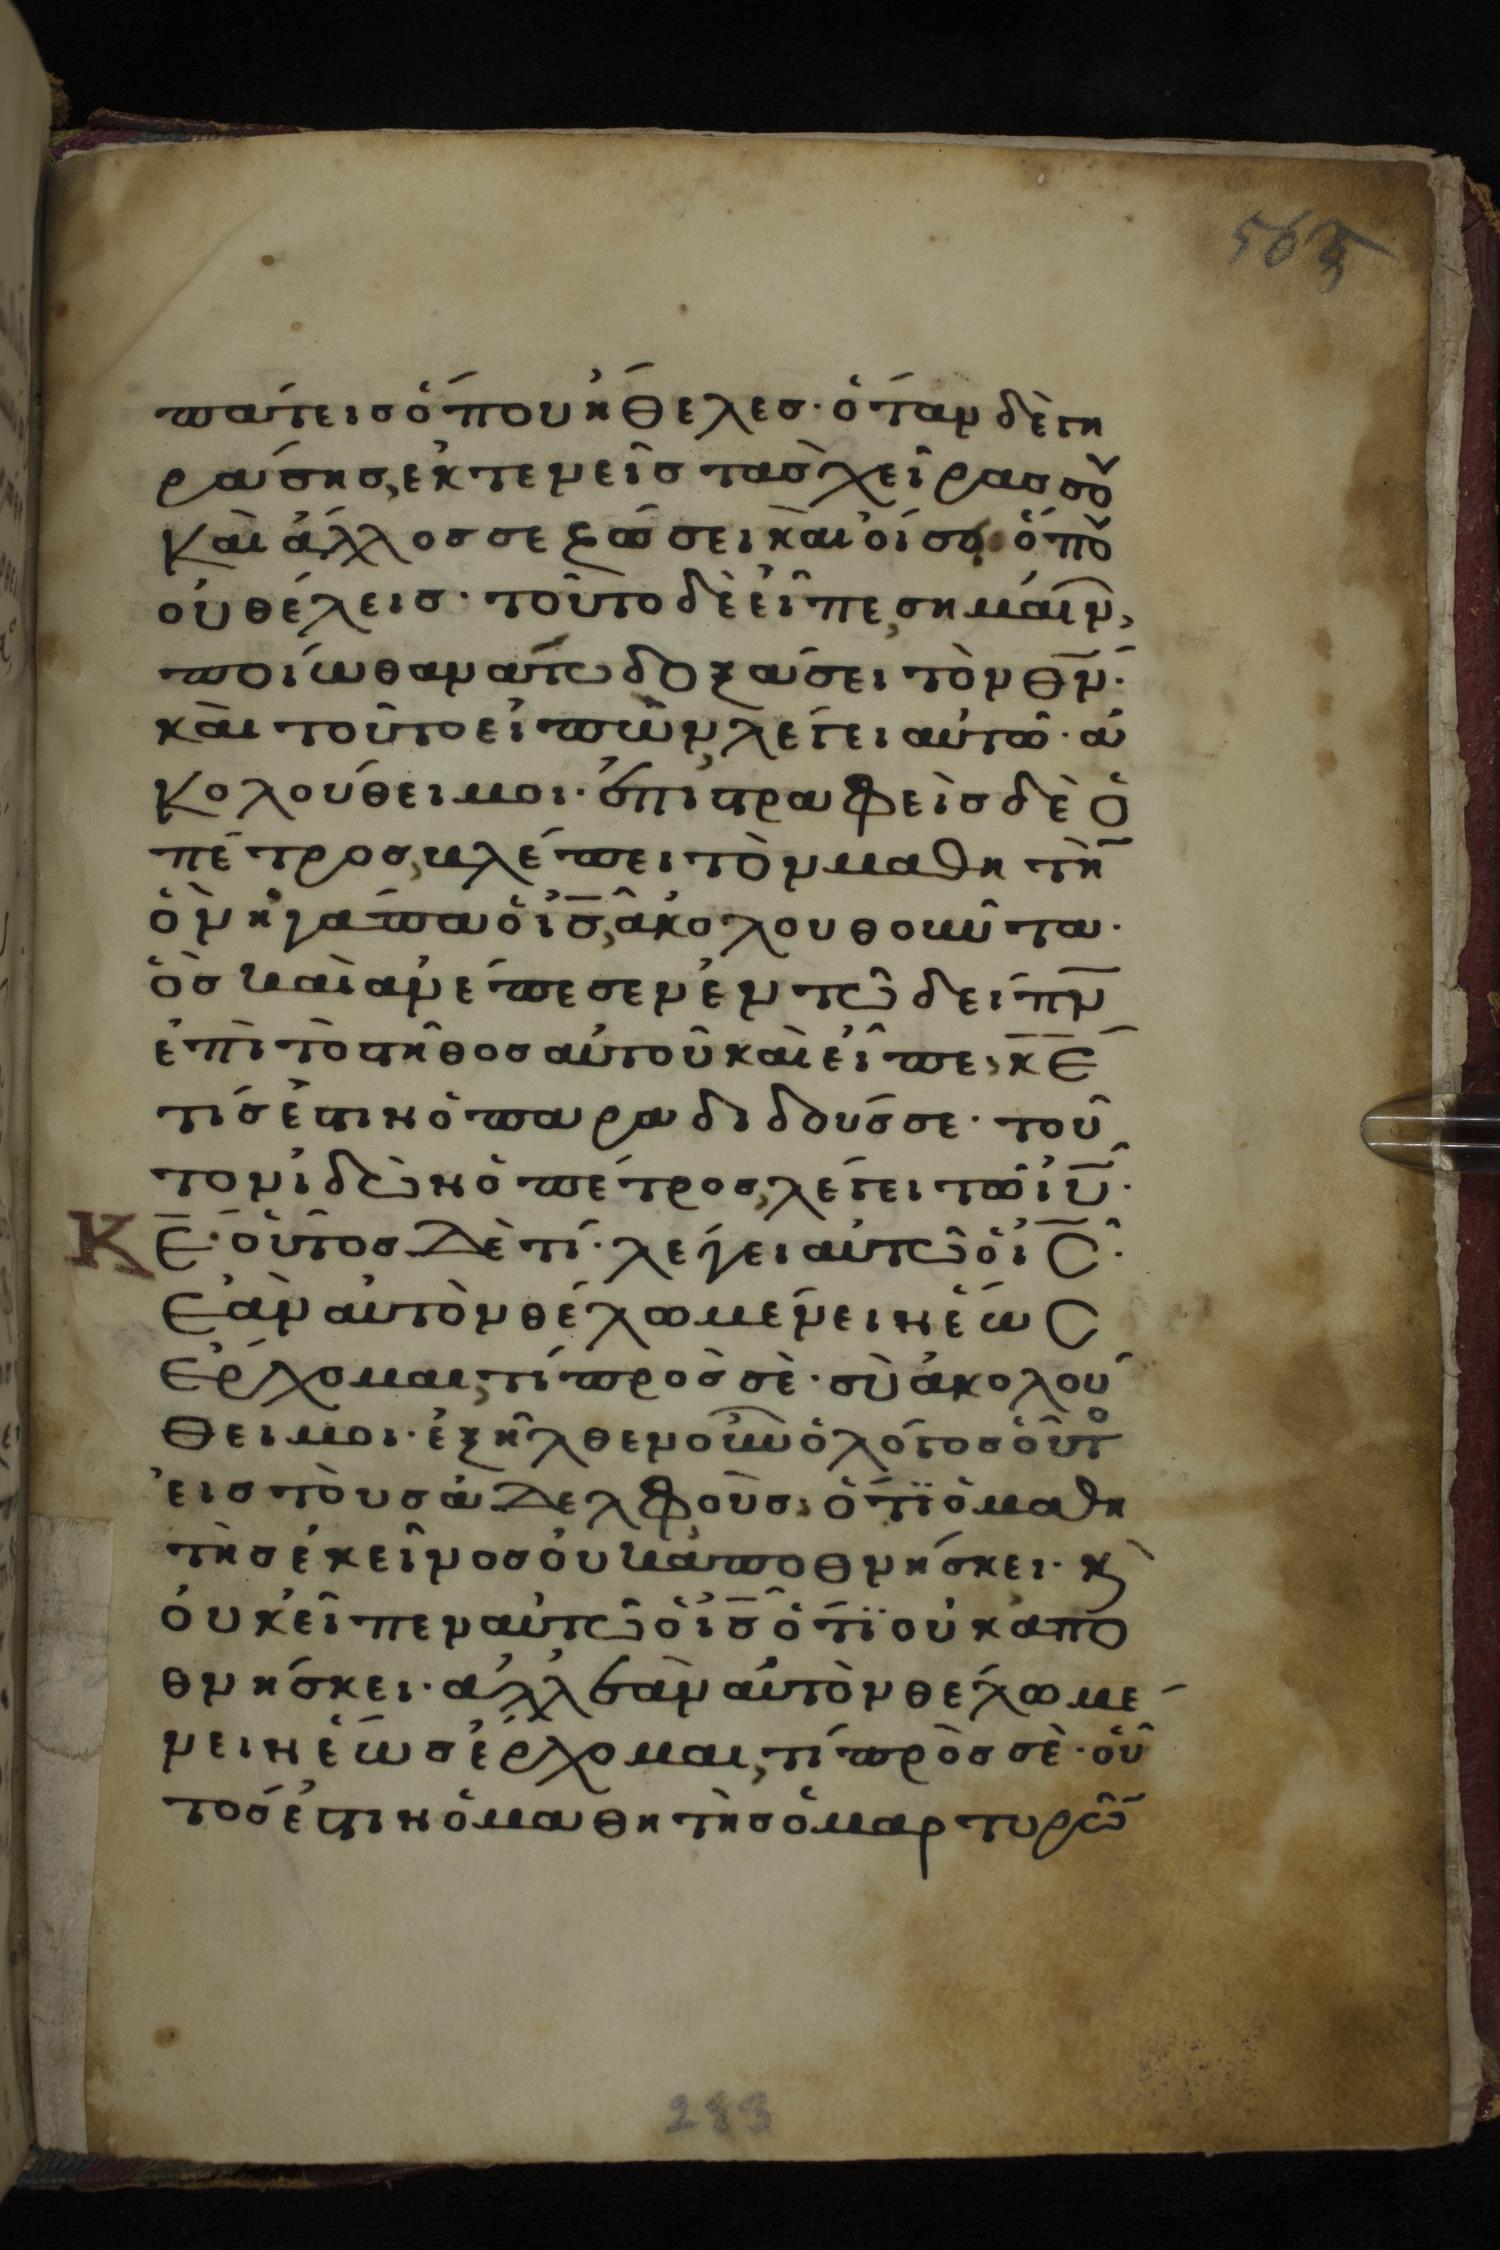 565
πάτεις ὅπου ἤθελες· ὅταν δὲ γη
ράσης, ἐκτενεῖς τὰς χεῖρας σου
καὶ ἄλλος σε ζώσει καὶ οἴσει ὅπου
οὐ θέλεις· τοῦτο δὲ εἶπε, σημαίν,
ποίω θανάτω δοξάσει τὸν θν̅·
καὶ τοῦτο εἰπὼν, λέγει αὐτῶ· ἀ
κολούθει μοι· ἐπιστραφεὶς δὲ ὁ
πέτρος, βλέπει τὸν μαθητὴ̅
ὃν ἠγάπα ὁ ι̅σ̅, ἀκολουθοῦντα·
ὃς καὶ ἀνέπεσεν ἐν τῶ δείπν̅
ἐπὶ τὸ στῆθος αὐτοῦ καὶ εἶπε, κ̅ε̅
τίς ἐστιν ὁ παραδιδούς σε· τοῦ
τον ἰδὼν ὁ πέτρος, λέγει τῶ ι̅υ̅·
Κ̅Ε̅· οὗτος δὲ τί· λέγει αὐτῶ ὁ ι̅ς̅·
Ἐὰν αὐτὸν θέλω μένειν ἕως
ἔρχομαι, τί πρὸς σὲ· σὺ ἀκολού
θει μοι· ἐξῆλθεν οὖν ὁ λόγος οὗτο
εἰς τοὺς ἀδελφοὺς, ὅτϊ ὁ μαθη
τὴς ἐκεῖνος οὐκ ἀποθνήσκει· κ̀
οὐκ εἶπεν αὐτῶ ὁ ι̅σ̅ ὅτϊ οὐκ ἀπο
θνήσκει· ἀλλ ἐὰν αὐτὸν θέλω μέ
νειν ἕως ἔρχομαι, τί πρὸς σὲ· οὗ
τός ἐστιν ὁ μαθητὴς ὁ μαρτυρῶ̅
283